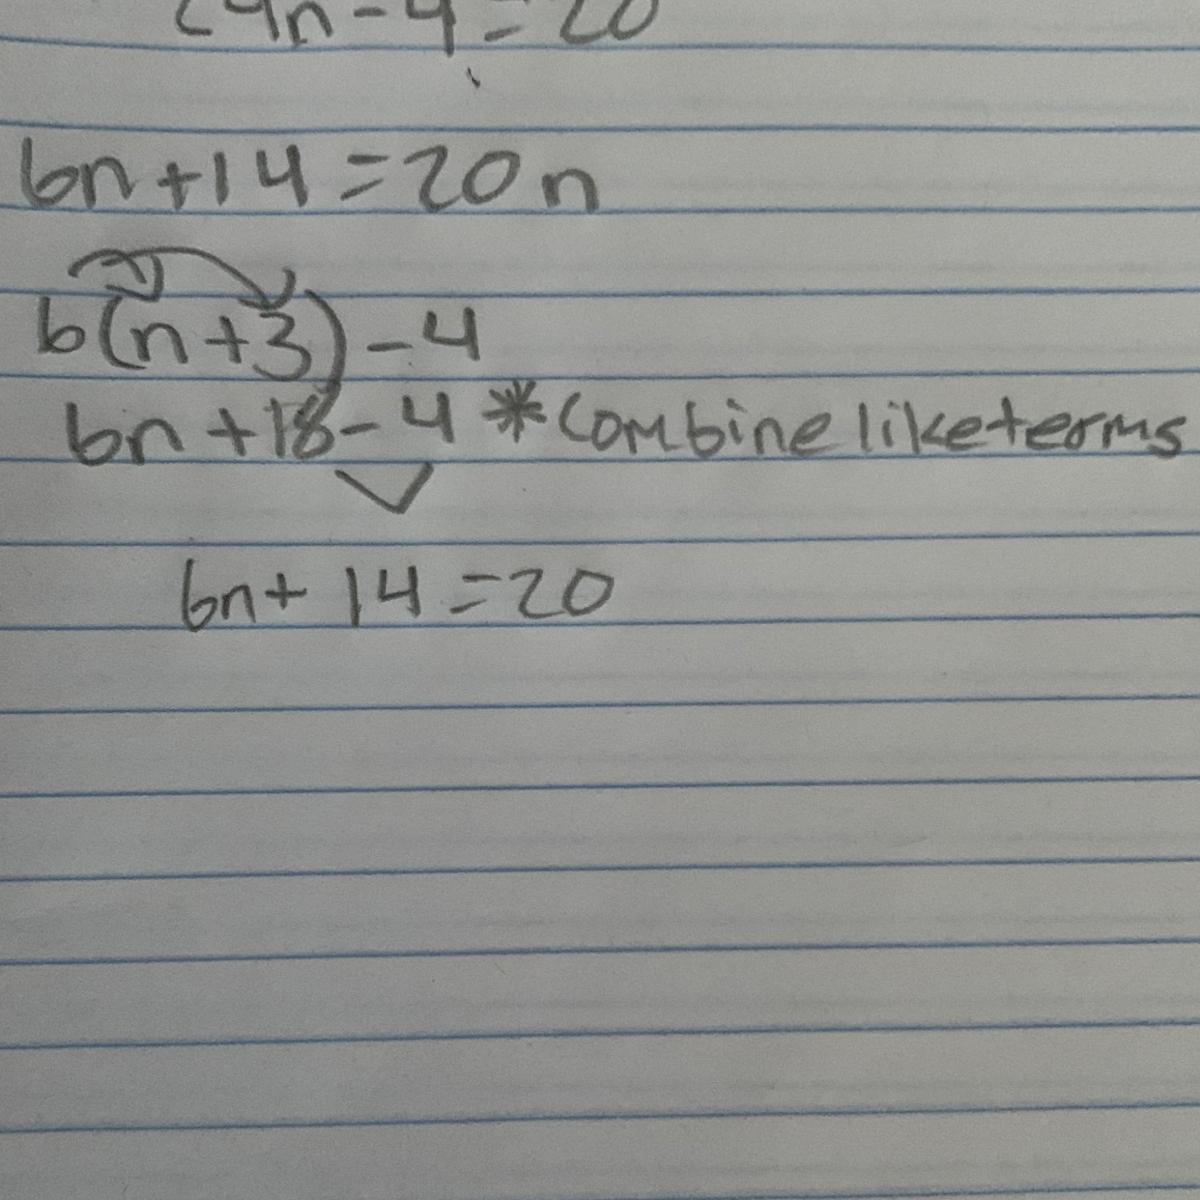 24n - 4 = 20
6n + 14 = 20n
6(n + 3) - 4
6n + 18 - 4 * Combine like terms
6n + 14 = 20